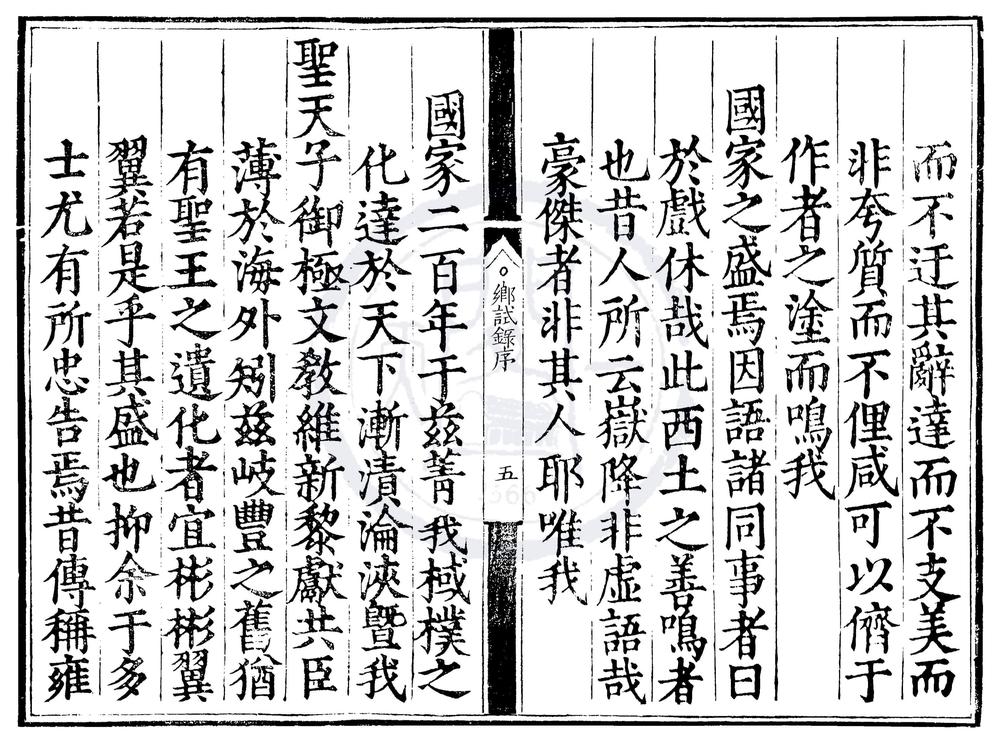 而不迂其辭達而不支美而
非夸質而不俚咸可以儕于
作者之塗而鳴我
國家之盛焉因語諸同事者曰
於戲休哉此西土之善鳴者
也昔人所云嶽降非虛語哉
豪傑者非其人耶唯我
鄉試錄序 五
國家二百年于茲菁莪棫樸之
化達於天下漸漬淪浹曁我
聖天子御極文敎維新黎獻共臣
薄於海外矧茲岐豐之舊猶
有聖王之遺化者宜彬彬翼
翼若是乎其盛也抑余于多
士尤有所忠告焉昔傳稱雍